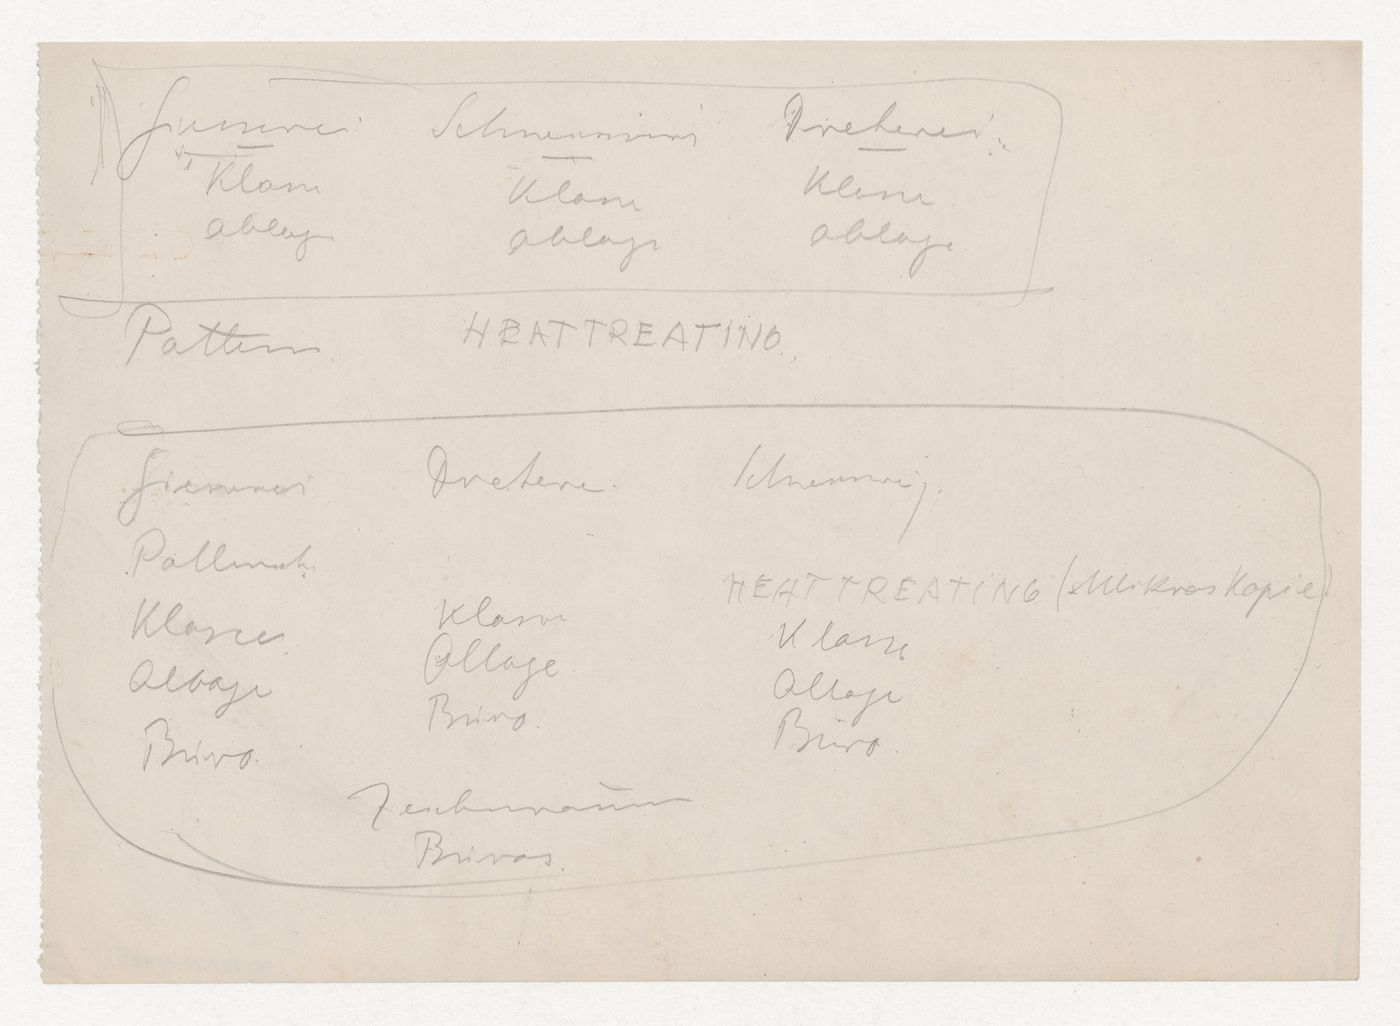 Giesserei Schweisserei Dreherei
Klasse Klasse Klasse
Ablage Ablage Ablage
Pattern HEAT TREATING
Giesserei Dreherei
HEAT TREATING (Mikroskopie)
Klasse Klasse Klasse
Ablage Ablage Ablage
Büro Büro Büro
Zeichenraum
Büros